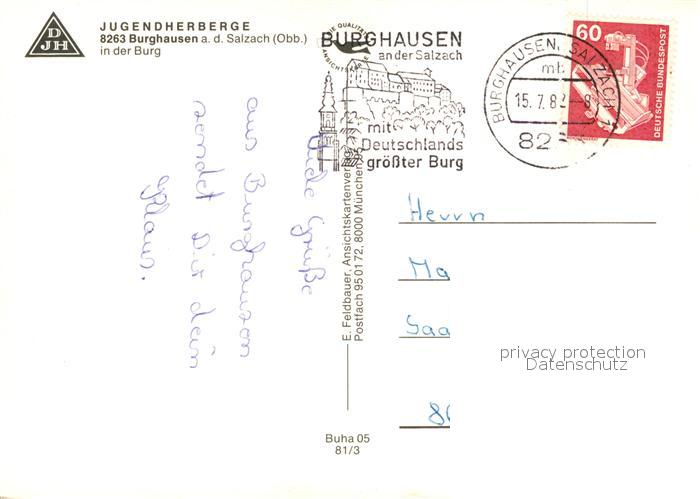 DJH
JUGENDHERBERGE
8263 Burghausen a. d. Salzach (Obb.)
in der Burg
BURGHAUSEN
an der Salzach
mit
Deutschlands
größter Burg
BURGHAUSEN, SALZACH 1
mb
15.7.82-8
82
60
DEUTSCHE BUNDESPOST
Viele Grüße
aus Burghausen
sendet Dir dein
Klaus.
E. Feldbauer, Ansichtskartenver
Postfach 95 01 72, 8000 München 95
Herrn
Ma
Saa
8
privacy protection
Datenschutz
Buha 05
81/3